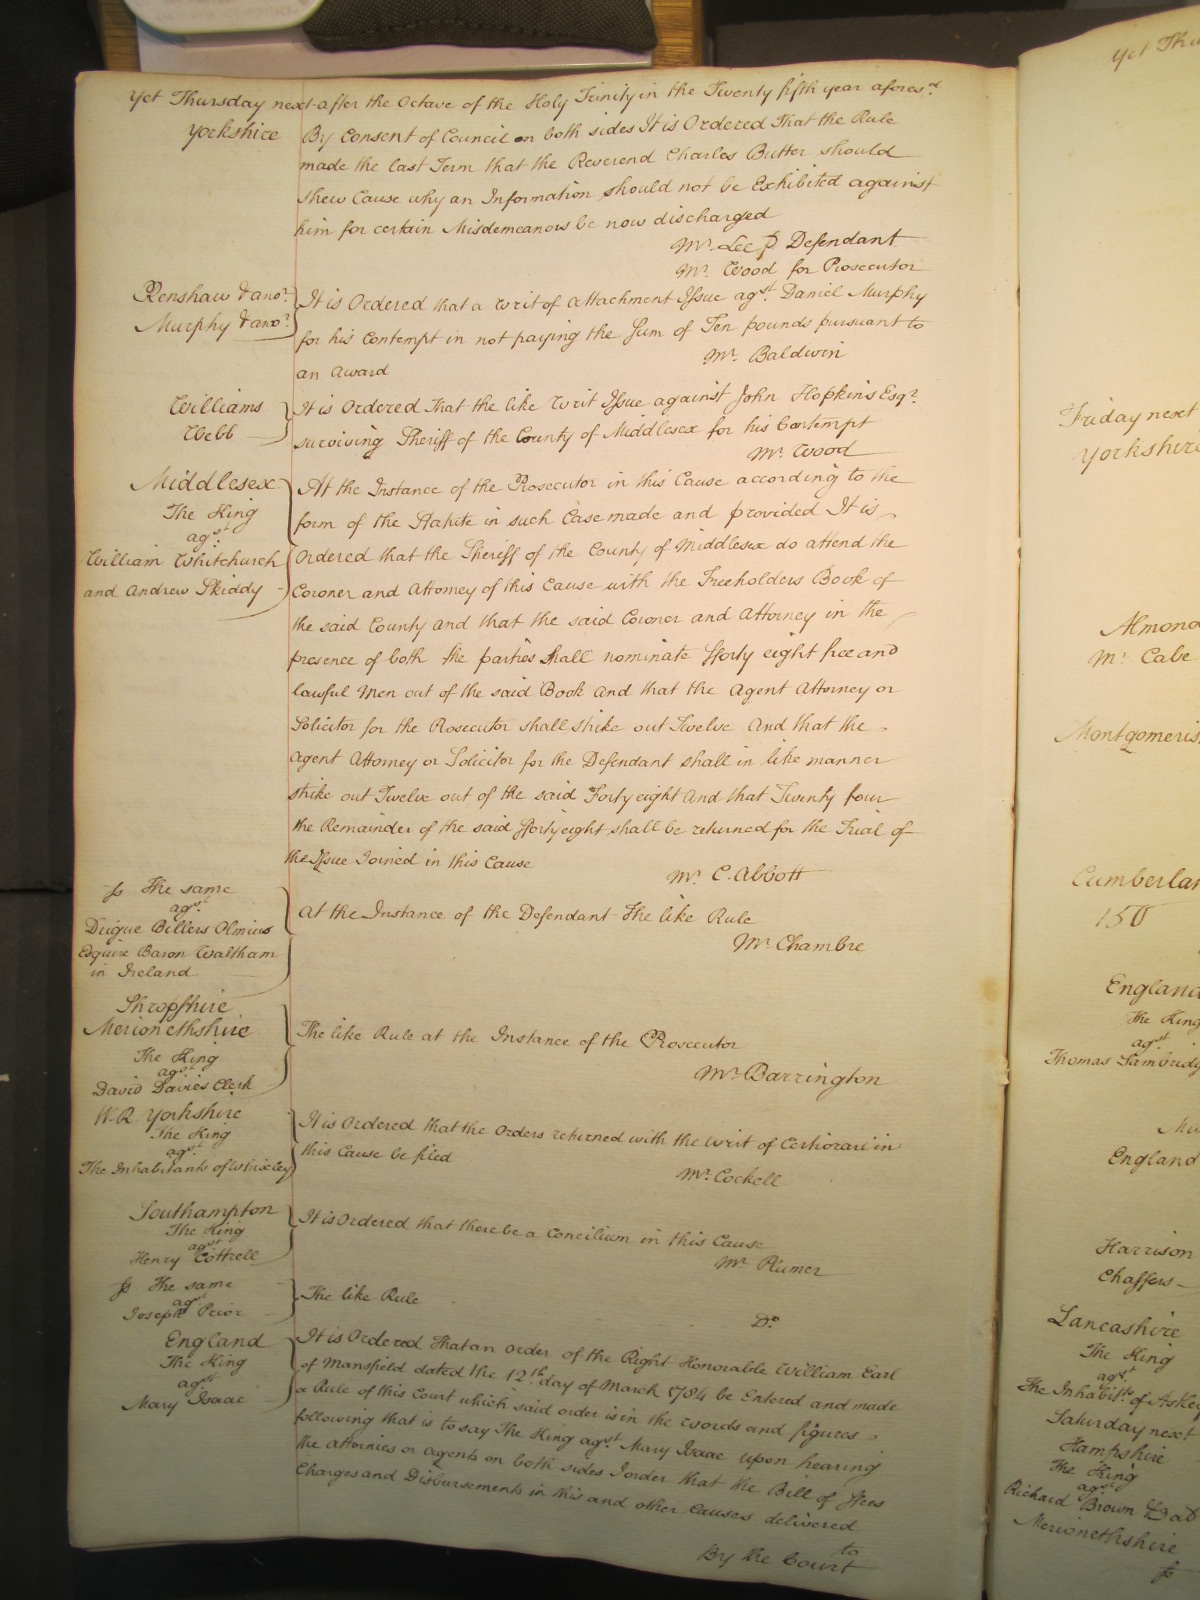 Yet Thursday next after the Octave of the Holy Trinity in the Twenty fifth year aforesd
Yorkshire
By Consent of Council on both sides It is Ordered That the Rule
made the last Term that the Reverend Charles Butter should
shew Cause why an Information should not be Exhibited against
him for certain Misdemeanors be now discharged
Mr. Lee p Defendant
Mr. Wood for Prosecutor
Renshaw & anor.
Murphy & anor.
It is Ordered that a Writ of Attachment Issue agst. Daniel Murphy
for his Contempt in not paying the Sum of Ten pounds pursuant to
an Award
Mr. Baldwin
Williams
Webb
It is Ordered That the like Writ Issue against John Hopkins Esqr.
surviving Sheriff of the County of Middlesex for his Contempt
Mr. Wood
Middlesex
The King
agst.
William Whitchurch
and Andrew Skiddy
At the Instance of the Prosecutor in this Cause according to the
form of the Statute in such Case made and provided It is
Ordered that the Sheriff of the County of Middlesex do attend the
Coroner and Attorney of this Cause with the Freeholders Book of
the said County and that the said Coroner and Attorney in the
presence of both the parties shall nominate fforty eight free and
lawful Men out of the said Book and that the Agent Attorney or
Solicitor for the Prosecutor shall strike out Twelve and that the
Agent Attorney or Solicitor for the Defendant shall in like manner
strike out Twelve out of the said Forty eight And that Twenty four
the Remainder of the said fforty eight shall be returned for the Trial of
the Issue Joined in this Cause
Mr. C. Abbott
fs The same
agst.
Drigue Billers Olmius
Esquire Baron Waltham
in Ireland
At the Instance of the Defendant The like Rule
Mr. Chambre
Shropshire
Merionethshire
The King
agst.
David Davies Clerk
The like Rule at the Instance of the Prosecutor
Mr. Barrington
W. R. Yorkshire
The King
agst.
The Inhabitants of Whixley
It is Ordered that the Orders returned with the Writ of Certiorari in
this Cause be filed
Mr. Cockell
Southampton
The King
agst
Henry Cottrell
It is Ordered that there be a Concilium in this Cause
Mr. Plumer
fs The same
agst
Joseph Prior
The like Rule
Do.
England
The King
agst
Mary Isaac
It is Ordered That an order of the Right Honorable William Earl
of Mansfield dated the 12th. day of March 1784 be Entered and made
a Rule of this Court which said order is in the words and figures
following that is to say The King agst. Mary Isaac upon hearing
the Attornies or Agents on both sides I order that the Bill of ffees
Charges and Disbursements in this and other Causes delivered
to
By the Court
Yet Thu
Friday next
Yorkshire
Almond
Mr. Cabe
Cumberlan
150
England
The King
agst.
Thomas
England
Harrison
Chaffers
Lancashire
The King
agst.
The Inhabits. of
Saturday next
Hampshire
The King
agst
Richard Brown
Merionethshire
fs